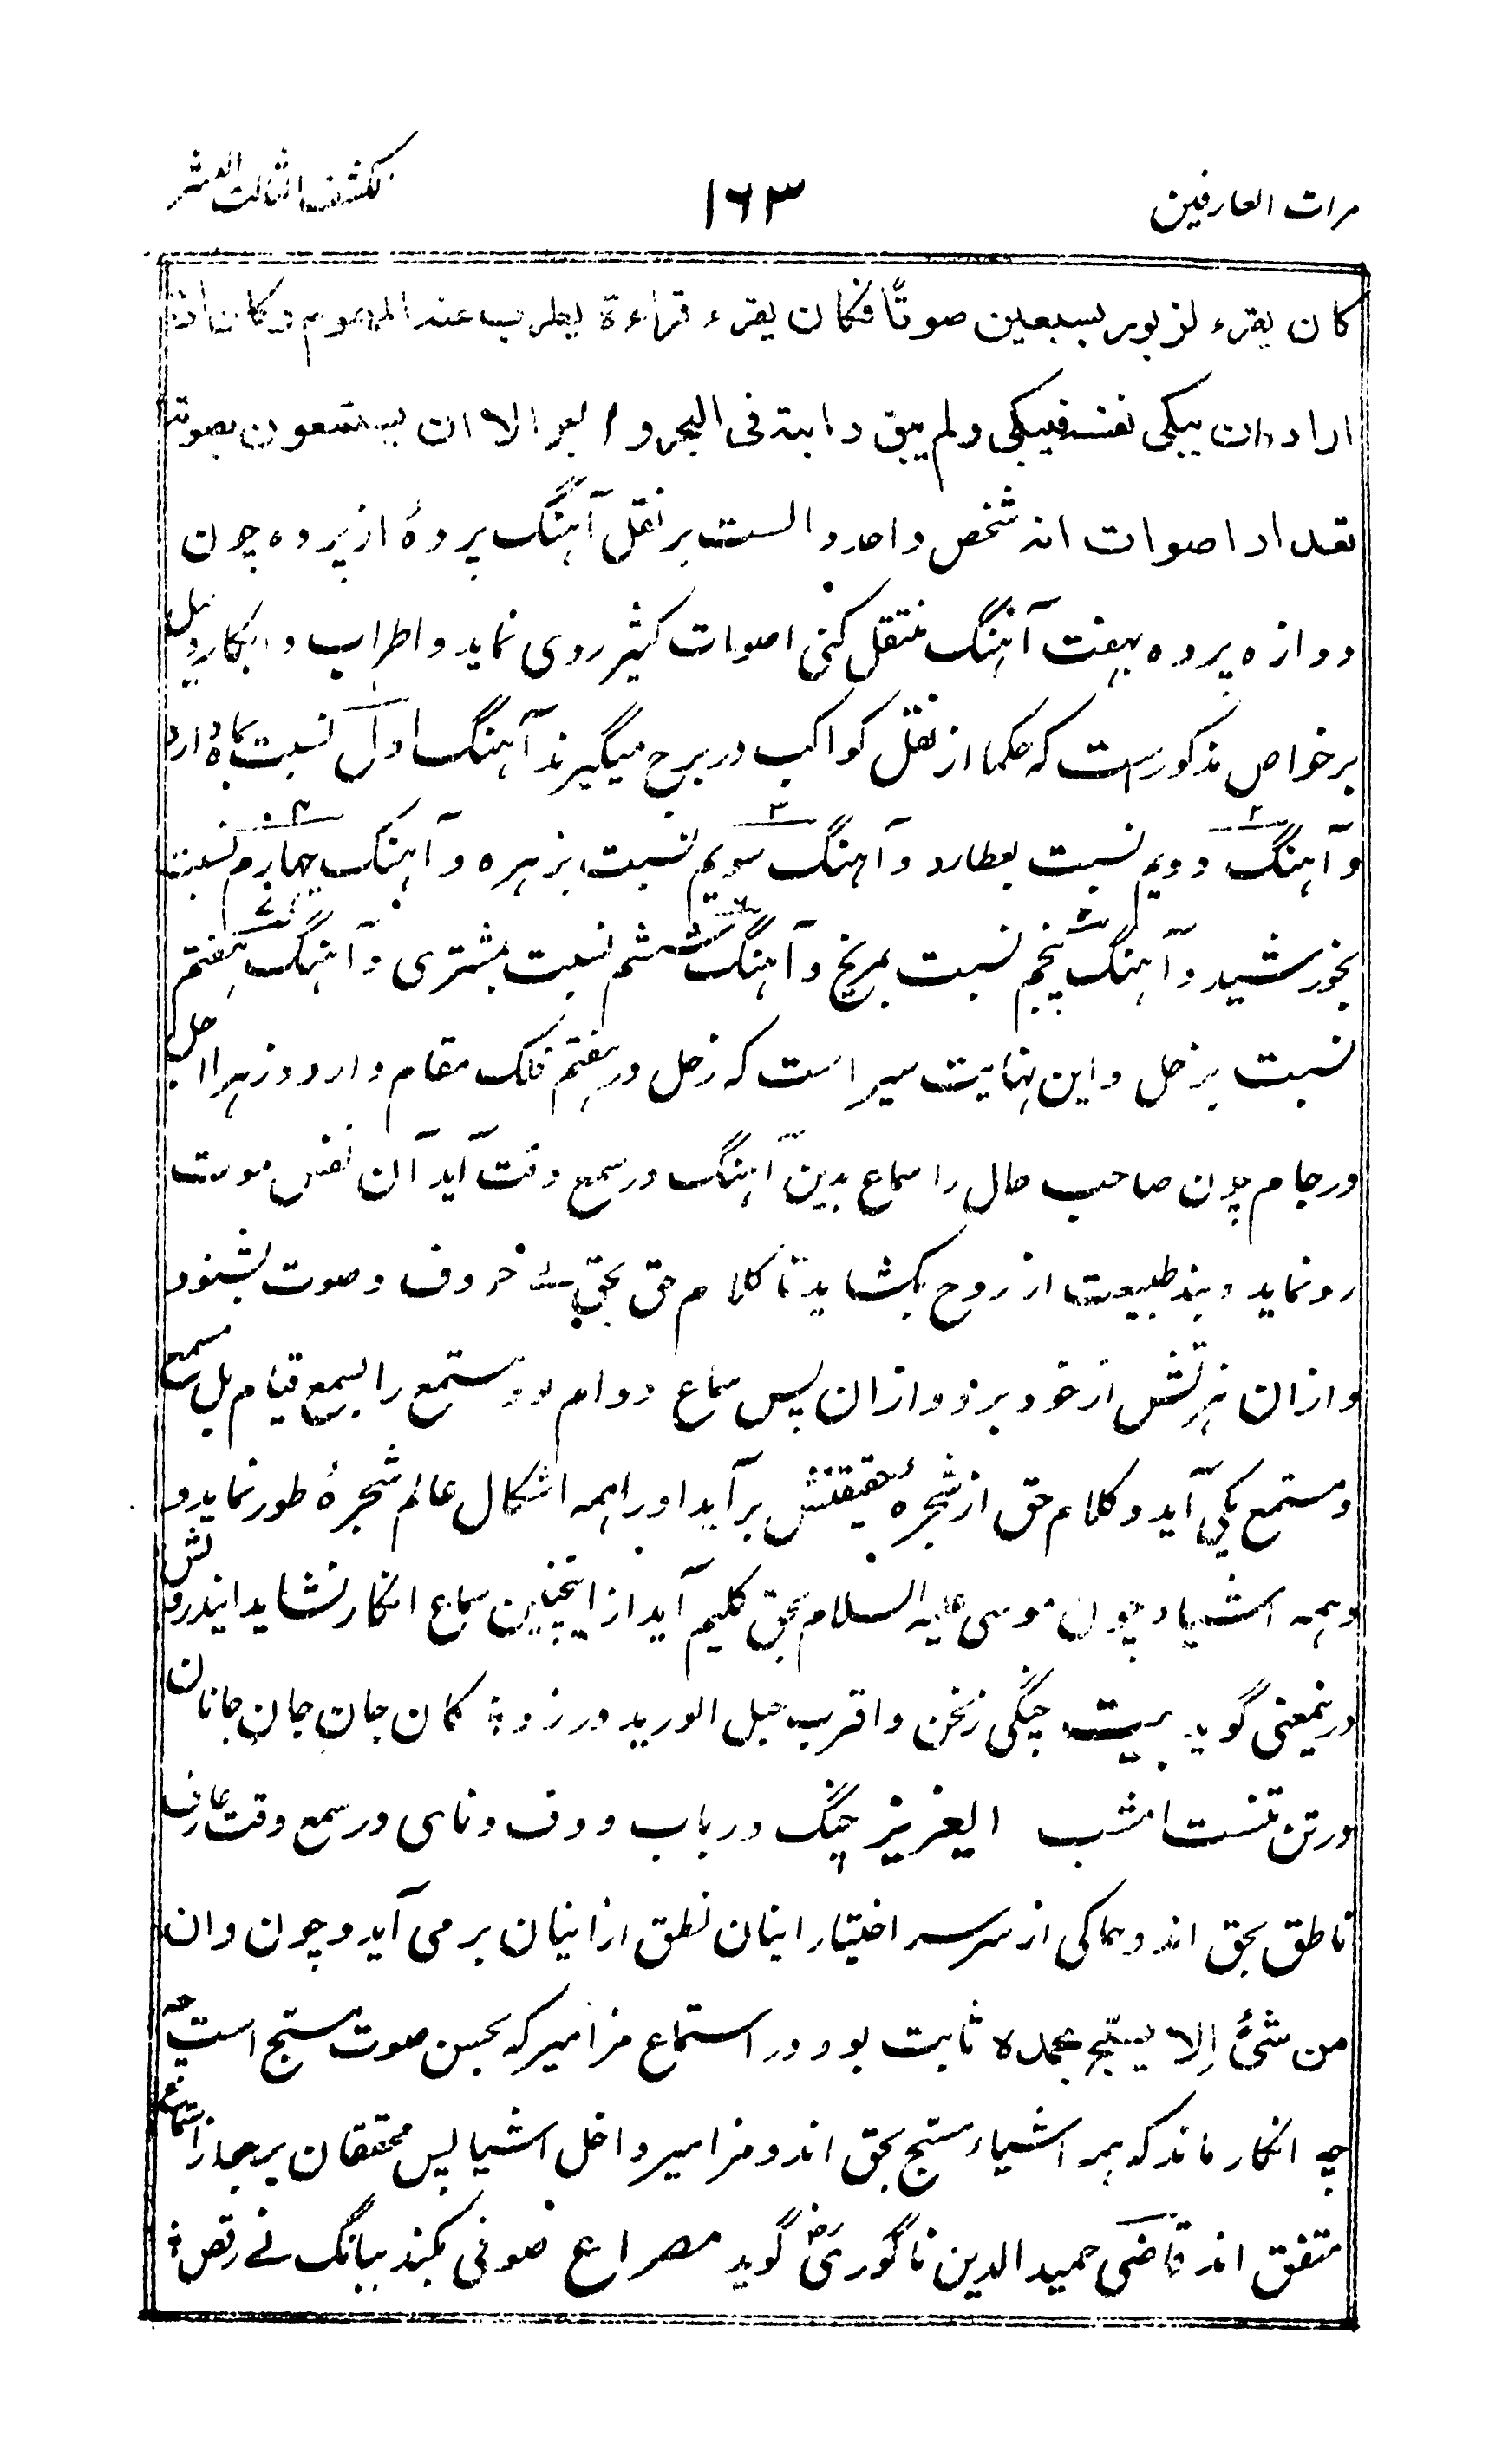 مرات العارفین ۱۶۳ کشف الثالث العشر
کان یقرء لزبور بسبعین صوتًا فکان یقرء قراءة یطرب عند المهموم و کان اذا
اراد ان یبکی نفسه فیبکی و لم یبق دابة فی البحر و البر الا ان یستمعون بصوته
تعداد اصوات از شخص واحد دالست بر نقل آہنگ پردۂ از پردہ چون
دوازہ پردہ بہفت آہنگ منتقل کنی اصوات کثیر روی نماید و اطراب و ابکار دلیل
بر خواص مذکورست کہ حکما از نقل کواکب در برج میگیرند آہنگ اول نسبت بماہ دارد
و آہنگ دویم نسبت بعطارد و آہنگ سویم نسبت بزہرہ و آہنگ چہارم نسبت
بخورشید و آہنگ پنجم نسبت بمریخ و آہنگ ششم نسبت بمشتری و آہنگ ہفتم
نسبت بزحل و این نہایت سیر است کہ زحل در ہفتم فلک مقام دارد و زہر اجل
در جام چون صاحب حال را سماع بدین آہنگ در سمع وقت آید آن نفس موت
رو نماید و بند طبیعت از روح بکشاید تا کلام حق بحق بے حروف و صوت بشنود
و ازان ہزتش از خود برد و ازان پس سماع دوام بود و مستمع را بسمع قیام بل مسمع
و مستمع یکی آید و کلام حق از شجرۂ حقیقتش برآید او را ہمہ اشکال عالم شجرۂ طور نماید و
و ہمہ اشیاء چون موسی علیہ السلام بحق کلیم آید از اینچنین سماع انکار نشاید اندرونش
درینمعنی گوید بیت چنگی زنخن و اقرب حبل الورید در زد ؛ کان جان جان جان جانان
در تن تنست امشب ایعزیز چنگ و رباب و دف و نای در سمع وقت عارف
ناطق بحق اند و حاکی از سر سر اختیار اینان نطق ازانیان بر می آید و چون وان
من شئ الا یسبح بحمدہ ثابت بود در استماع مزامیر کہ بحسن صوت مسبح است
چہ انکار ماند کہ ہمہ اشیاء مسبح بحق اند و مزامیر داخل اشیا پس محققان بر جواز استماع
متفق اند قاضی حمید الدین ناگوری گوید مصراع صوفی بکند ببانگ نے رقص ؛